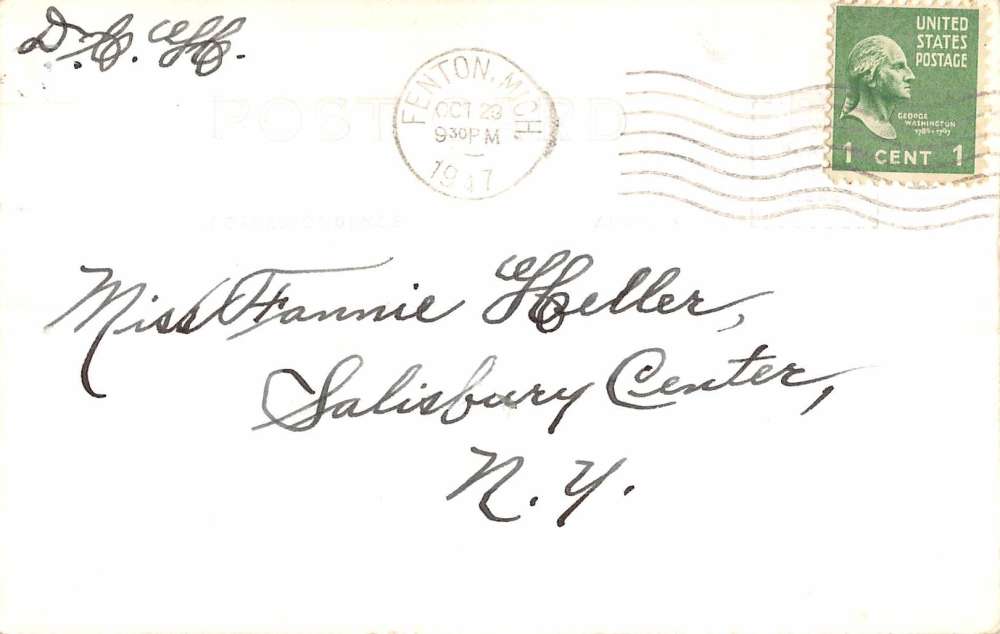 FENTON, MICH.
OCT 23
9 30 PM
1947
UNITED
STATES
POSTAGE
GEORGE
WASHINGTON
1789-1797
1 CENT 1
POST CARD
Miss Fannie Heller,
Salisbury Center,
N. Y.